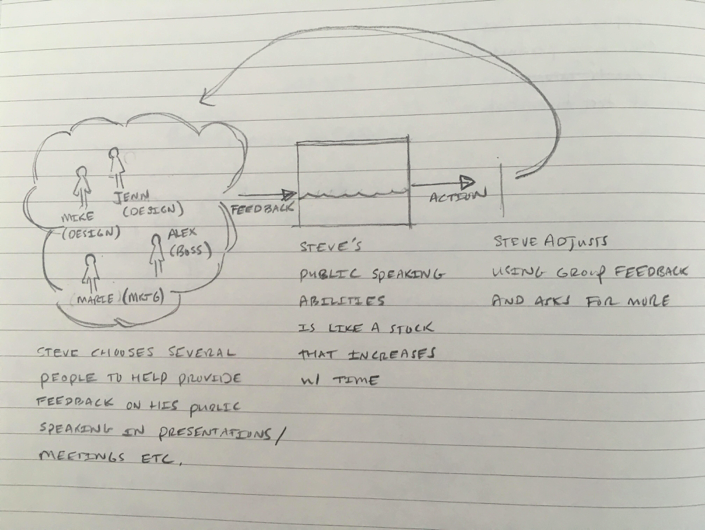 JENN
(DESIGN)
MIKE
(DESIGN)
ALEX
(BOSS)
MARIE (MKTG)
FEEDBACK
ACTION
STEVE CHOOSES SEVERAL
PEOPLE TO HELP PROVIDE
FEEDBACK ON HIS PUBLIC
SPEAKING IN PRESENTATIONS/
MEETINGS ETC.
STEVE'S
PUBLIC SPEAKING
ABILITIES
IS LIKE A STOCK
THAT INCREASES
W/ TIME
STEVE ADJUSTS
USING GROUP FEEDBACK
AND ASKS FOR MORE